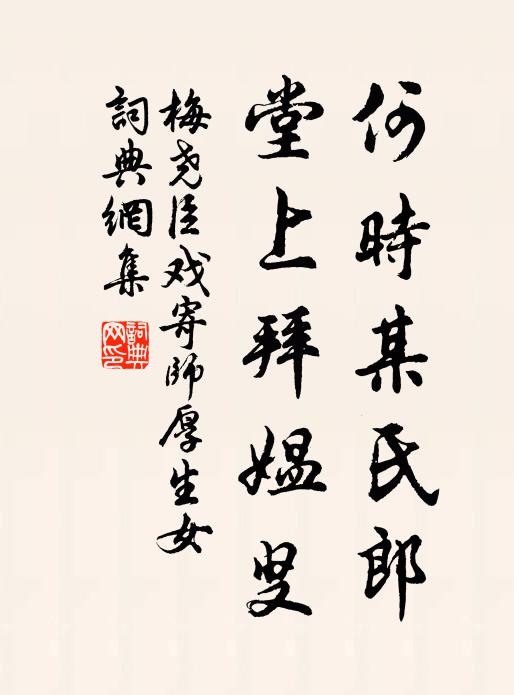 何時某氏郎
堂上拜媼叟
梅尧臣戏寄師厚生女
詞典網集
詞典网印